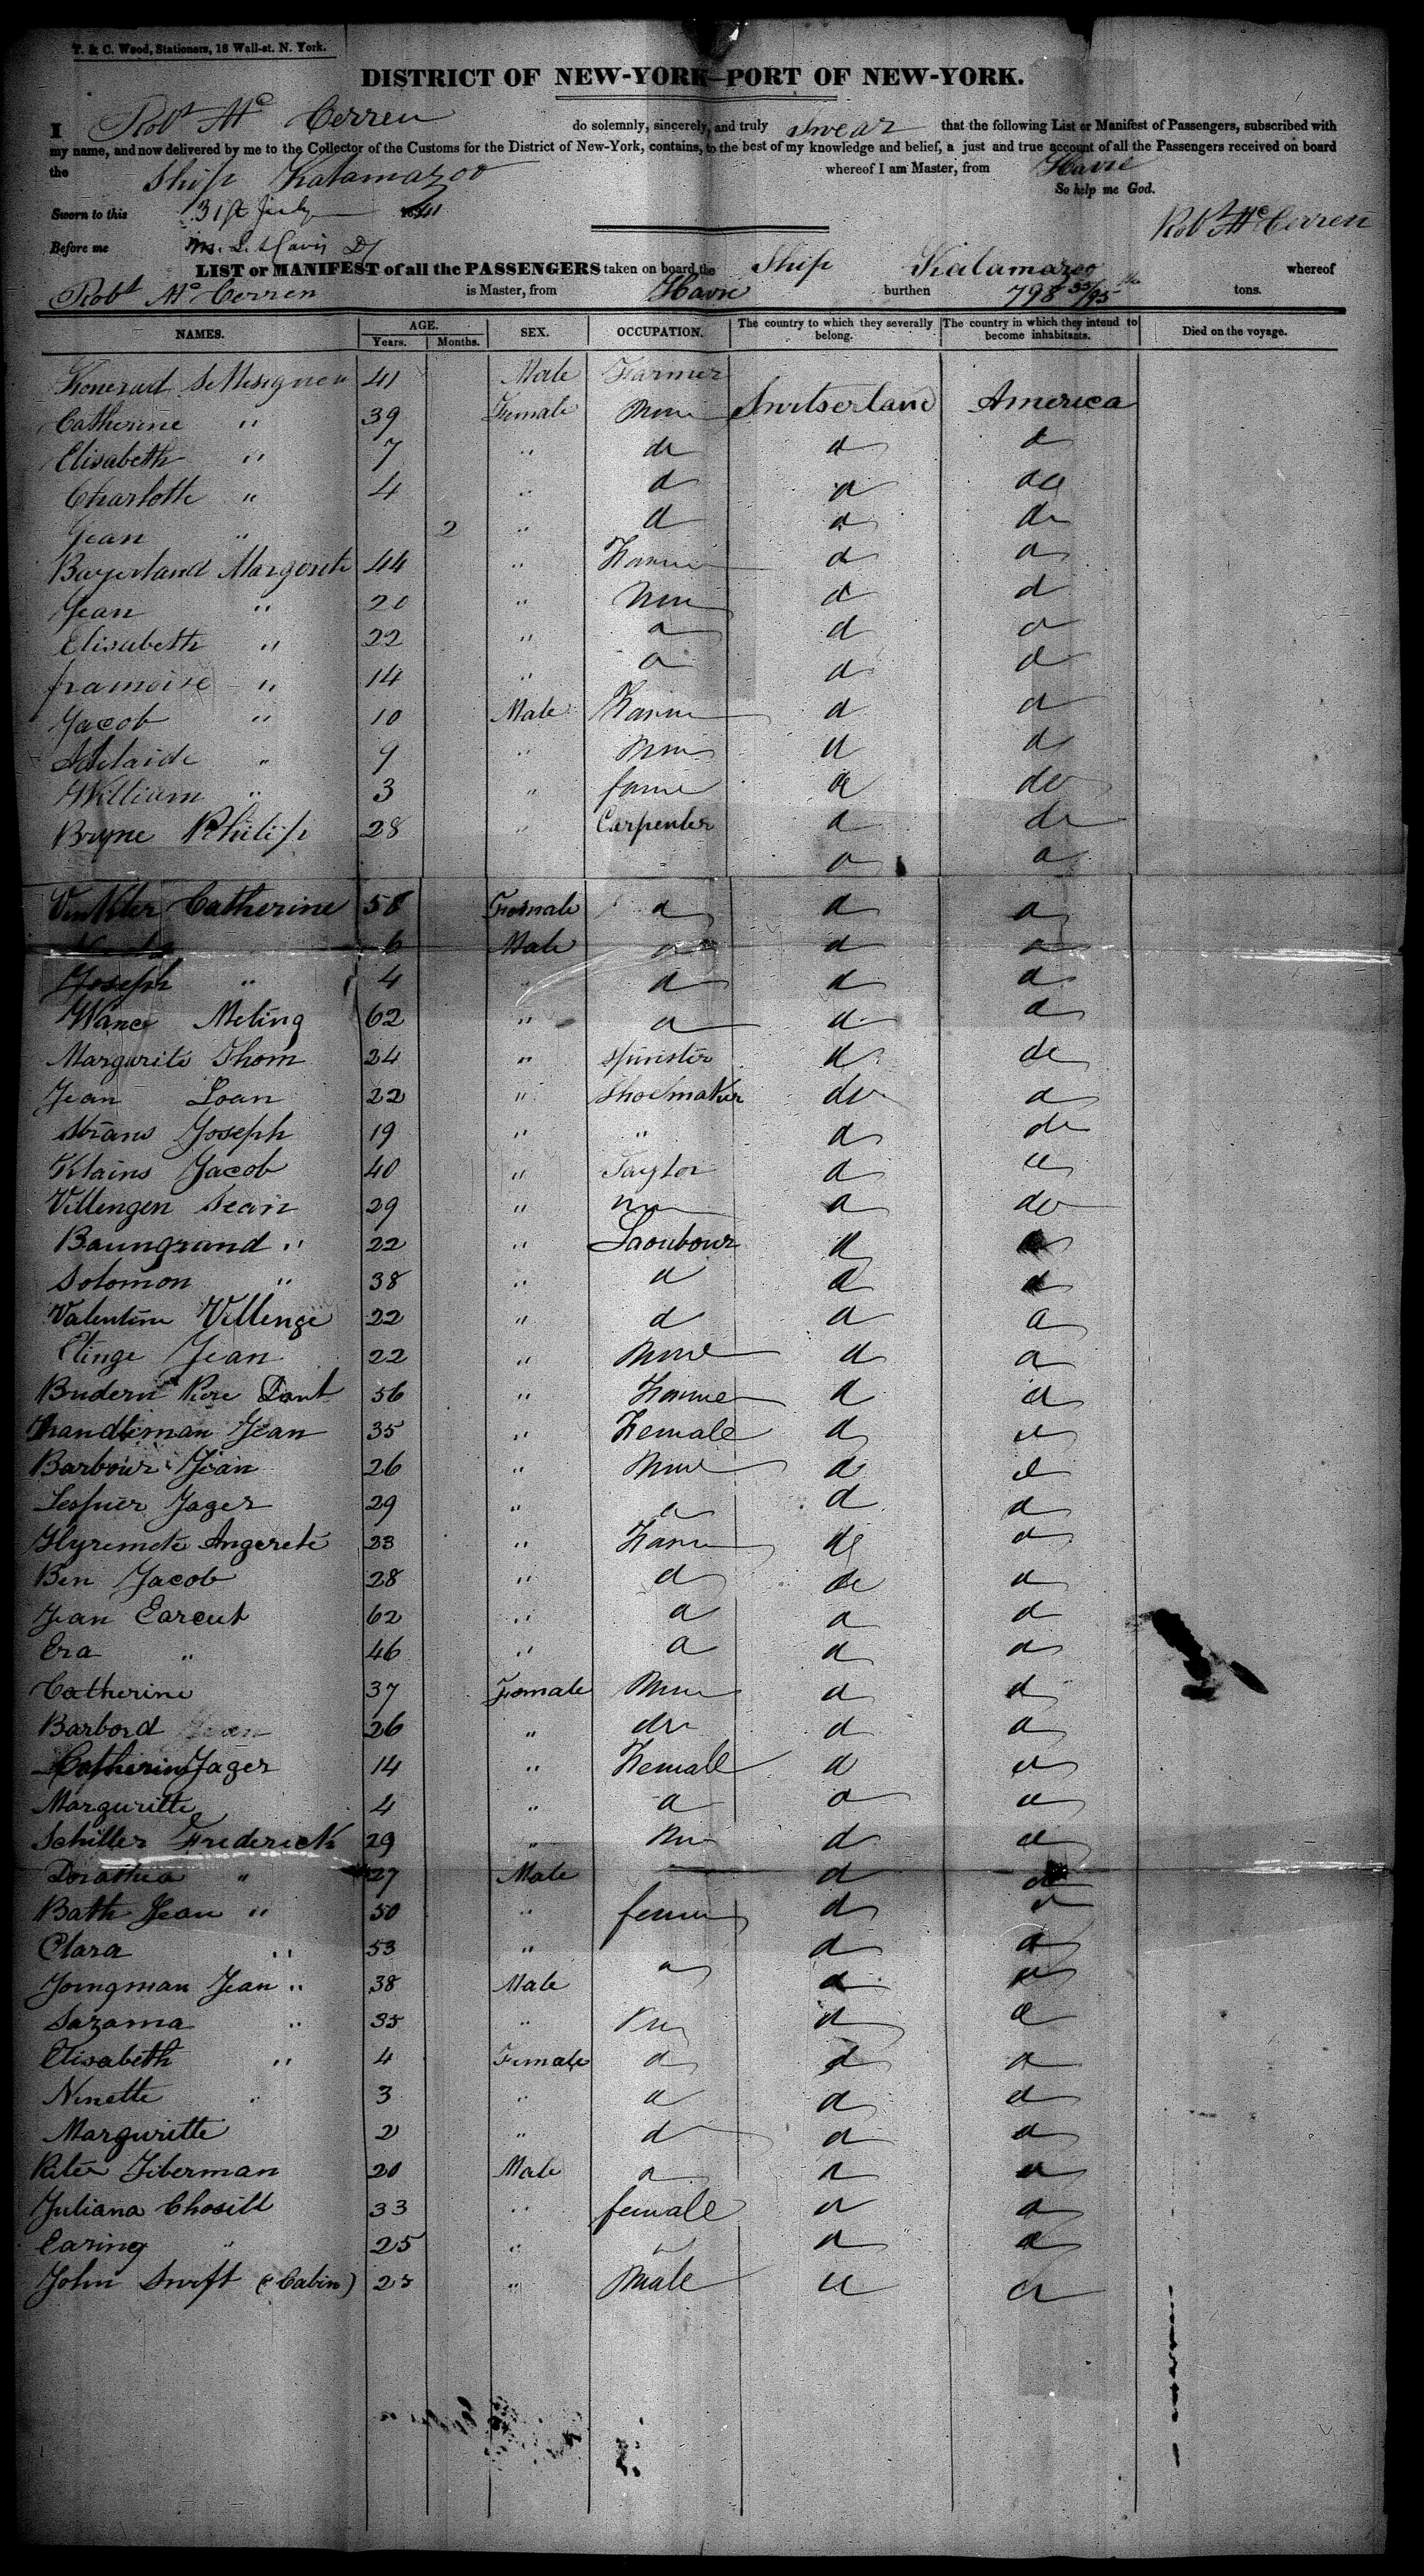 T. & C. Wood, Stationers, 18 Wall-st. N. York.
DISTRICT OF NEW-YORK—PORT OF NEW-YORK.
I Robt Mc Cerren do solemnly, sincerely, and truly swear that the following List or Manifest of Passengers, subscribed with
my name, and now delivered by me to the Collector of the Customs for the District of New-York, contains, to the best of my knowledge and belief, a just and true account of all the Passengers received on board
the Ship Kalamazoo whereof I am Master, from Havre
So help me God.
Sworn to this 31st July 1841
Robt Mc Cerren
Before me
LIST or MANIFEST of all the PASSENGERS taken on board the Ship Kalamazoo whereof
Robt Mc Cerren is Master, from Havre burthen 798 35/95 tons.
NAMES. AGE. Years. Months. SEX. OCCUPATION. The country to which they severally belong. The country in which they intend to become inhabitants. Died on the voyage.
41 Male Farmer
Catherine " 39 Female Switserland America
Elisabeth " 7 " do d d
Charlotte " 4 " d d do
Jean " 2 " d d do
Bayerland Margerite 44 " d d
Jean " 20 " d d
Elisabeth " 22 " d d d
" 14 " d d d
Jacob " 10 Male d d
Adelaide " 9 " d d
William " 3 " d do
Bryne Philip 28 " Carpenter d do
d d
Catherine 58 Female d d d
6 Male d d d
Joseph " 4 d d d
Meling 62 " d d d
Margurite Thom 24 " spinster d do
Jean Loan 22 " Shoemaker do d
Joseph 19 " " d do
Klains Jacob 40 " Taylor d d
Villengen Jean 29 " d do
Baungrand " 22 " Laoubour d d
Solomon " 38 " d d d
Valentine Villenge 22 " d d d
Etinge Jean 22 " d d
Budern 56 " d d
Jean 35 " Female d d
Barbour Jean 26 " d d
Jager 29 " d d d
Angerete 33 " d d
Ben Jacob 28 " d do d
Jean Earcut 62 " d d d
Era " 46 " d d d
Catherine 37 Female d d
Barbord Jean 26 " do d d
Catherine Jager 14 " Female d d
Marguritte 4 " d d d
Schiller Frederick 29 " d d
Dorathea " 27 Male d d
Bath Jean " 50 " d d
Clara " 53 " d d
Joingman Jean " 38 Male d d d
Sazama " 35 " d d
Elisabeth " 4 Female d d d
Ninette " 3 " d d d
Marguritte 2 " d d d
Peter Liberman 20 Male d d d
Juliana Chosill 33 " female d d
Earing " 25 " " d d
John Swift (Cabin) 25 " Male d d